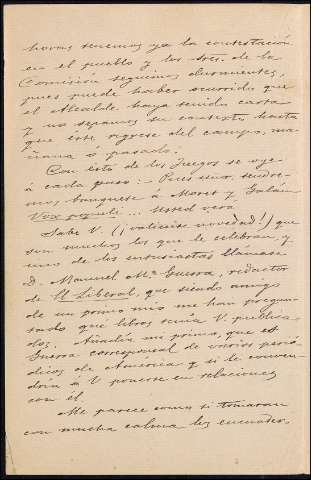 horas tenemos ya la contestación
en el pueblo y los Sres. de la
Comisión seguimos durmientes,
pues puede haber ocurrido que
el Alcalde haya tenido carta
y no sepamos su contexto hasta
que éste regrese del campo, ma-
ñana ó pasado.
Con esto de los Juegos se oye
á cada paso: - Pero
á Moret y Galán
Vox populi ... Usted verá
Sabe V. (¡valiente novedad!) que
son muchos los que le celebran, y
uno de los entusiastas llámase
D. Manuel Mª Guerra, redactor
de El Liberal, que siendo amigo
de un primo mío me han pregun-
tado qué libros tenía V. publica-
dos. Añadía mi primo, que es
Guerra corresponsal de varios perió-
dicos de América y si le conven-
dría á V ponerse en relaciones
con él.
Me parece como si tomaran
con mucha calma los encuader-